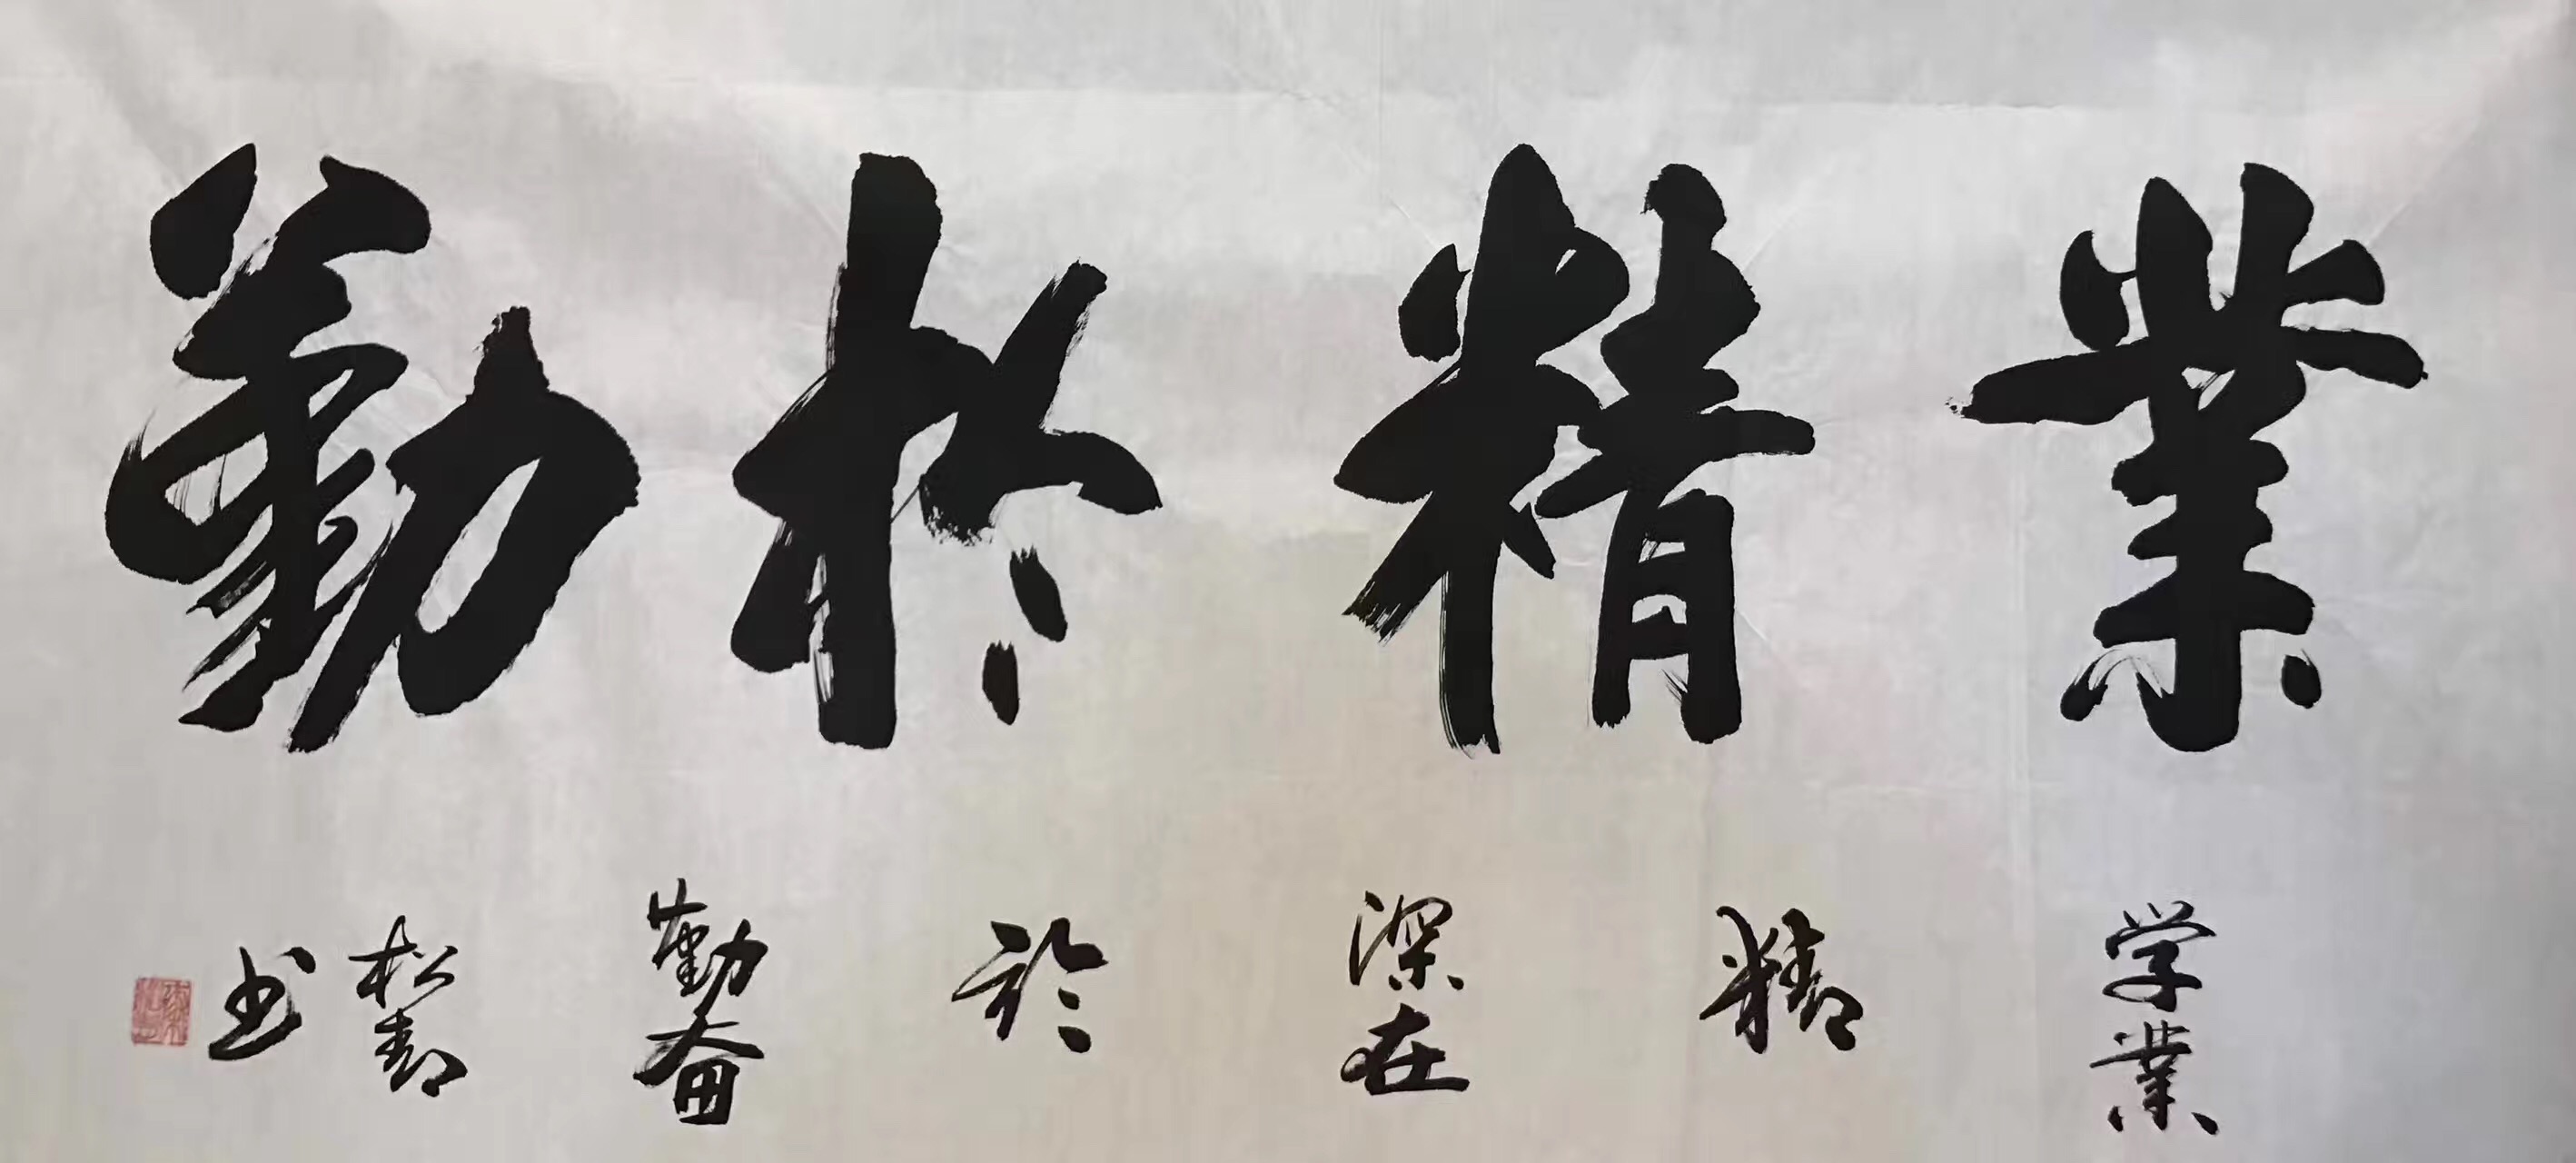 業精於勤
学業
精
深在
於
勤奮
松青
书